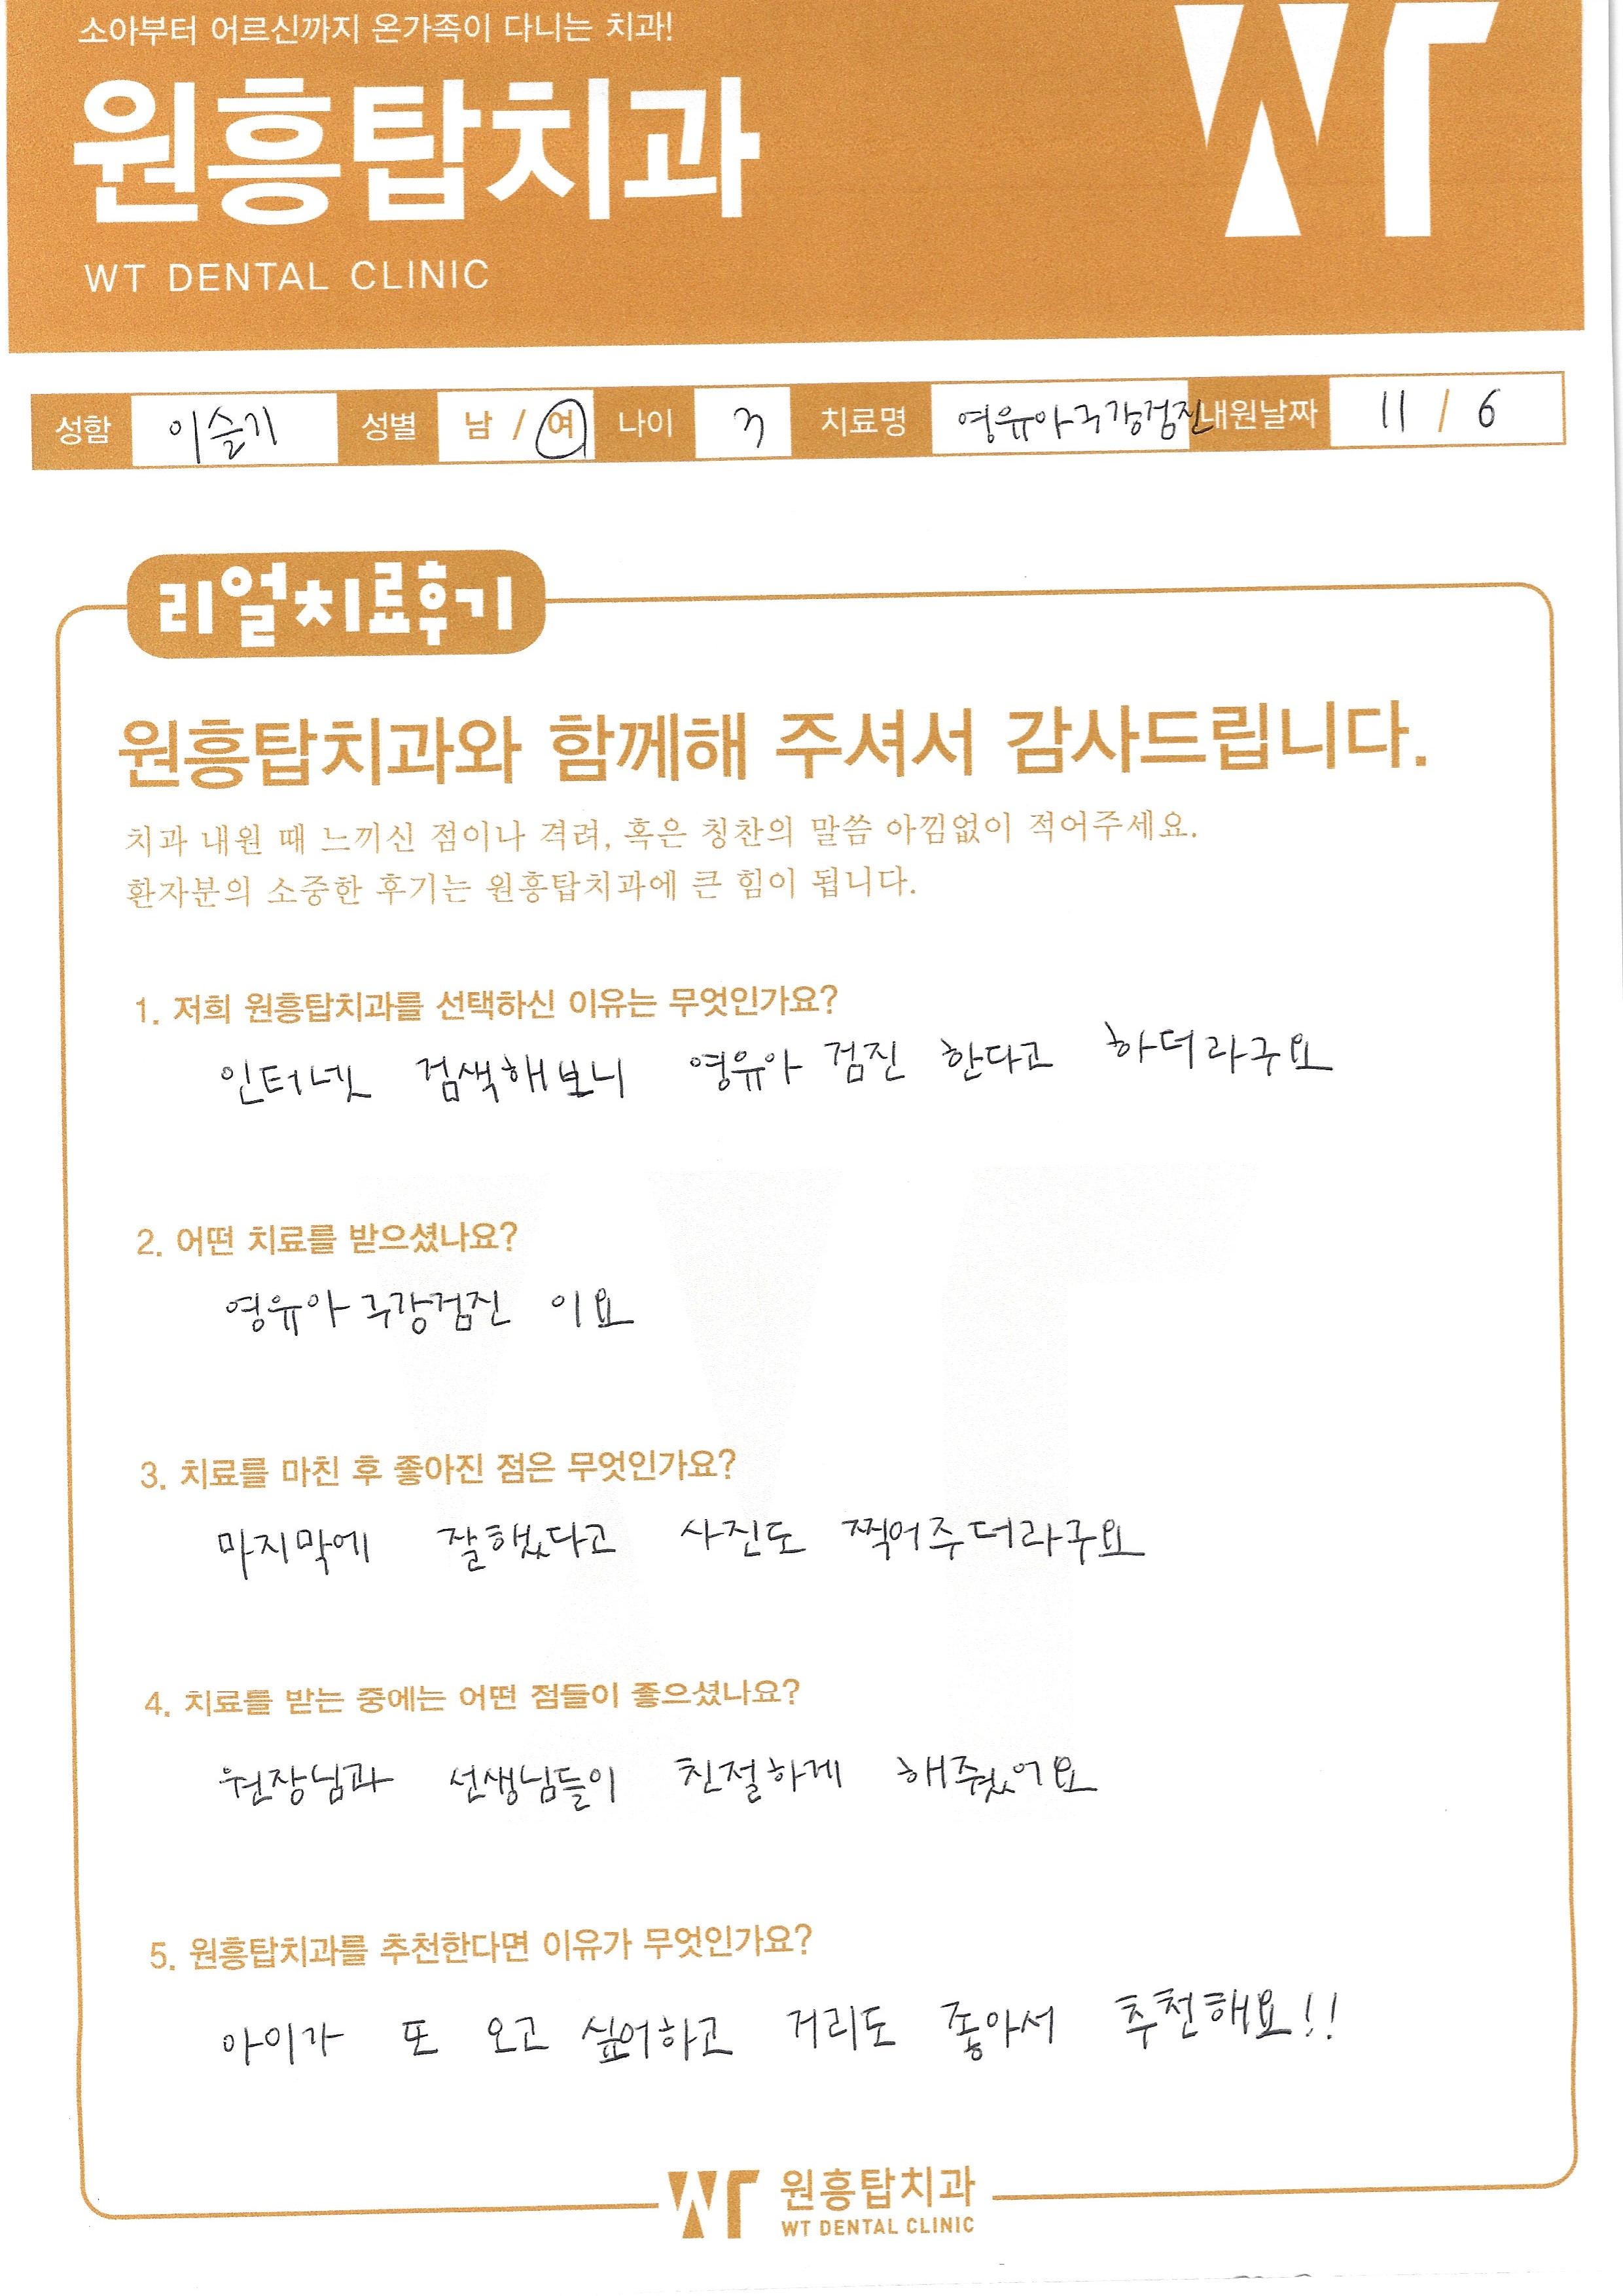 소아부터 어르신까지 온가족이 다니는 치과!
원흥탑치과
WT
WT DENTAL CLINIC
성함 이슬기 성별 남 / 여 나이 3 치료명 영유아구강검진 내원날짜 11 / 6
리얼치료후기
원흥탑치과와 함께해 주셔서 감사드립니다.
치과 내원 때 느끼신 점이나 격려, 혹은 칭찬의 말씀 아낌없이 적어주세요.
환자분의 소중한 후기는 원흥탑치과에 큰 힘이 됩니다.
1. 저희 원흥탑치과를 선택하신 이유는 무엇인가요?
인터넷 검색해보니 영유아 검진 한다고 하더라구요
2. 어떤 치료를 받으셨나요?
영유아 구강검진 이요
3. 치료를 마친 후 좋아진 점은 무엇인가요?
마지막에 잘했다고 사진도 찍어주더라구요
4. 치료를 받는 중에는 어떤 점들이 좋으셨나요?
원장님과 선생님들이 친절하게 해줬어요
5. 원흥탑치과를 추천한다면 이유가 무엇인가요?
아이가 또 오고 싶어하고 거리도 좋아서 추천해요!!
WT 원흥탑치과
WT DENTAL CLINIC